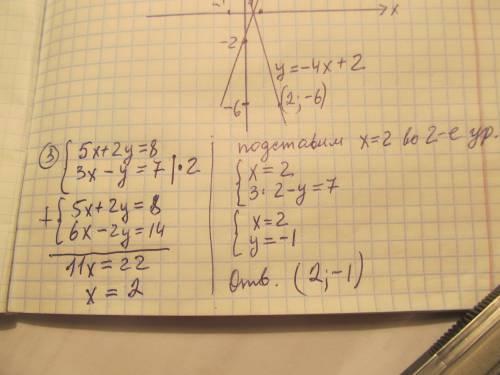 x
-2
y=-4x+2
(2;-6)
-6
③ {5x+2y=8
3x-y=7 |·2
+ {5x+2y=8
6x-2y=14
11x=22
x=2
подставим x=2 во 2-е ур.
{x=2
3·2-y=7
{x=2
y=-1
Отв. (2;-1)